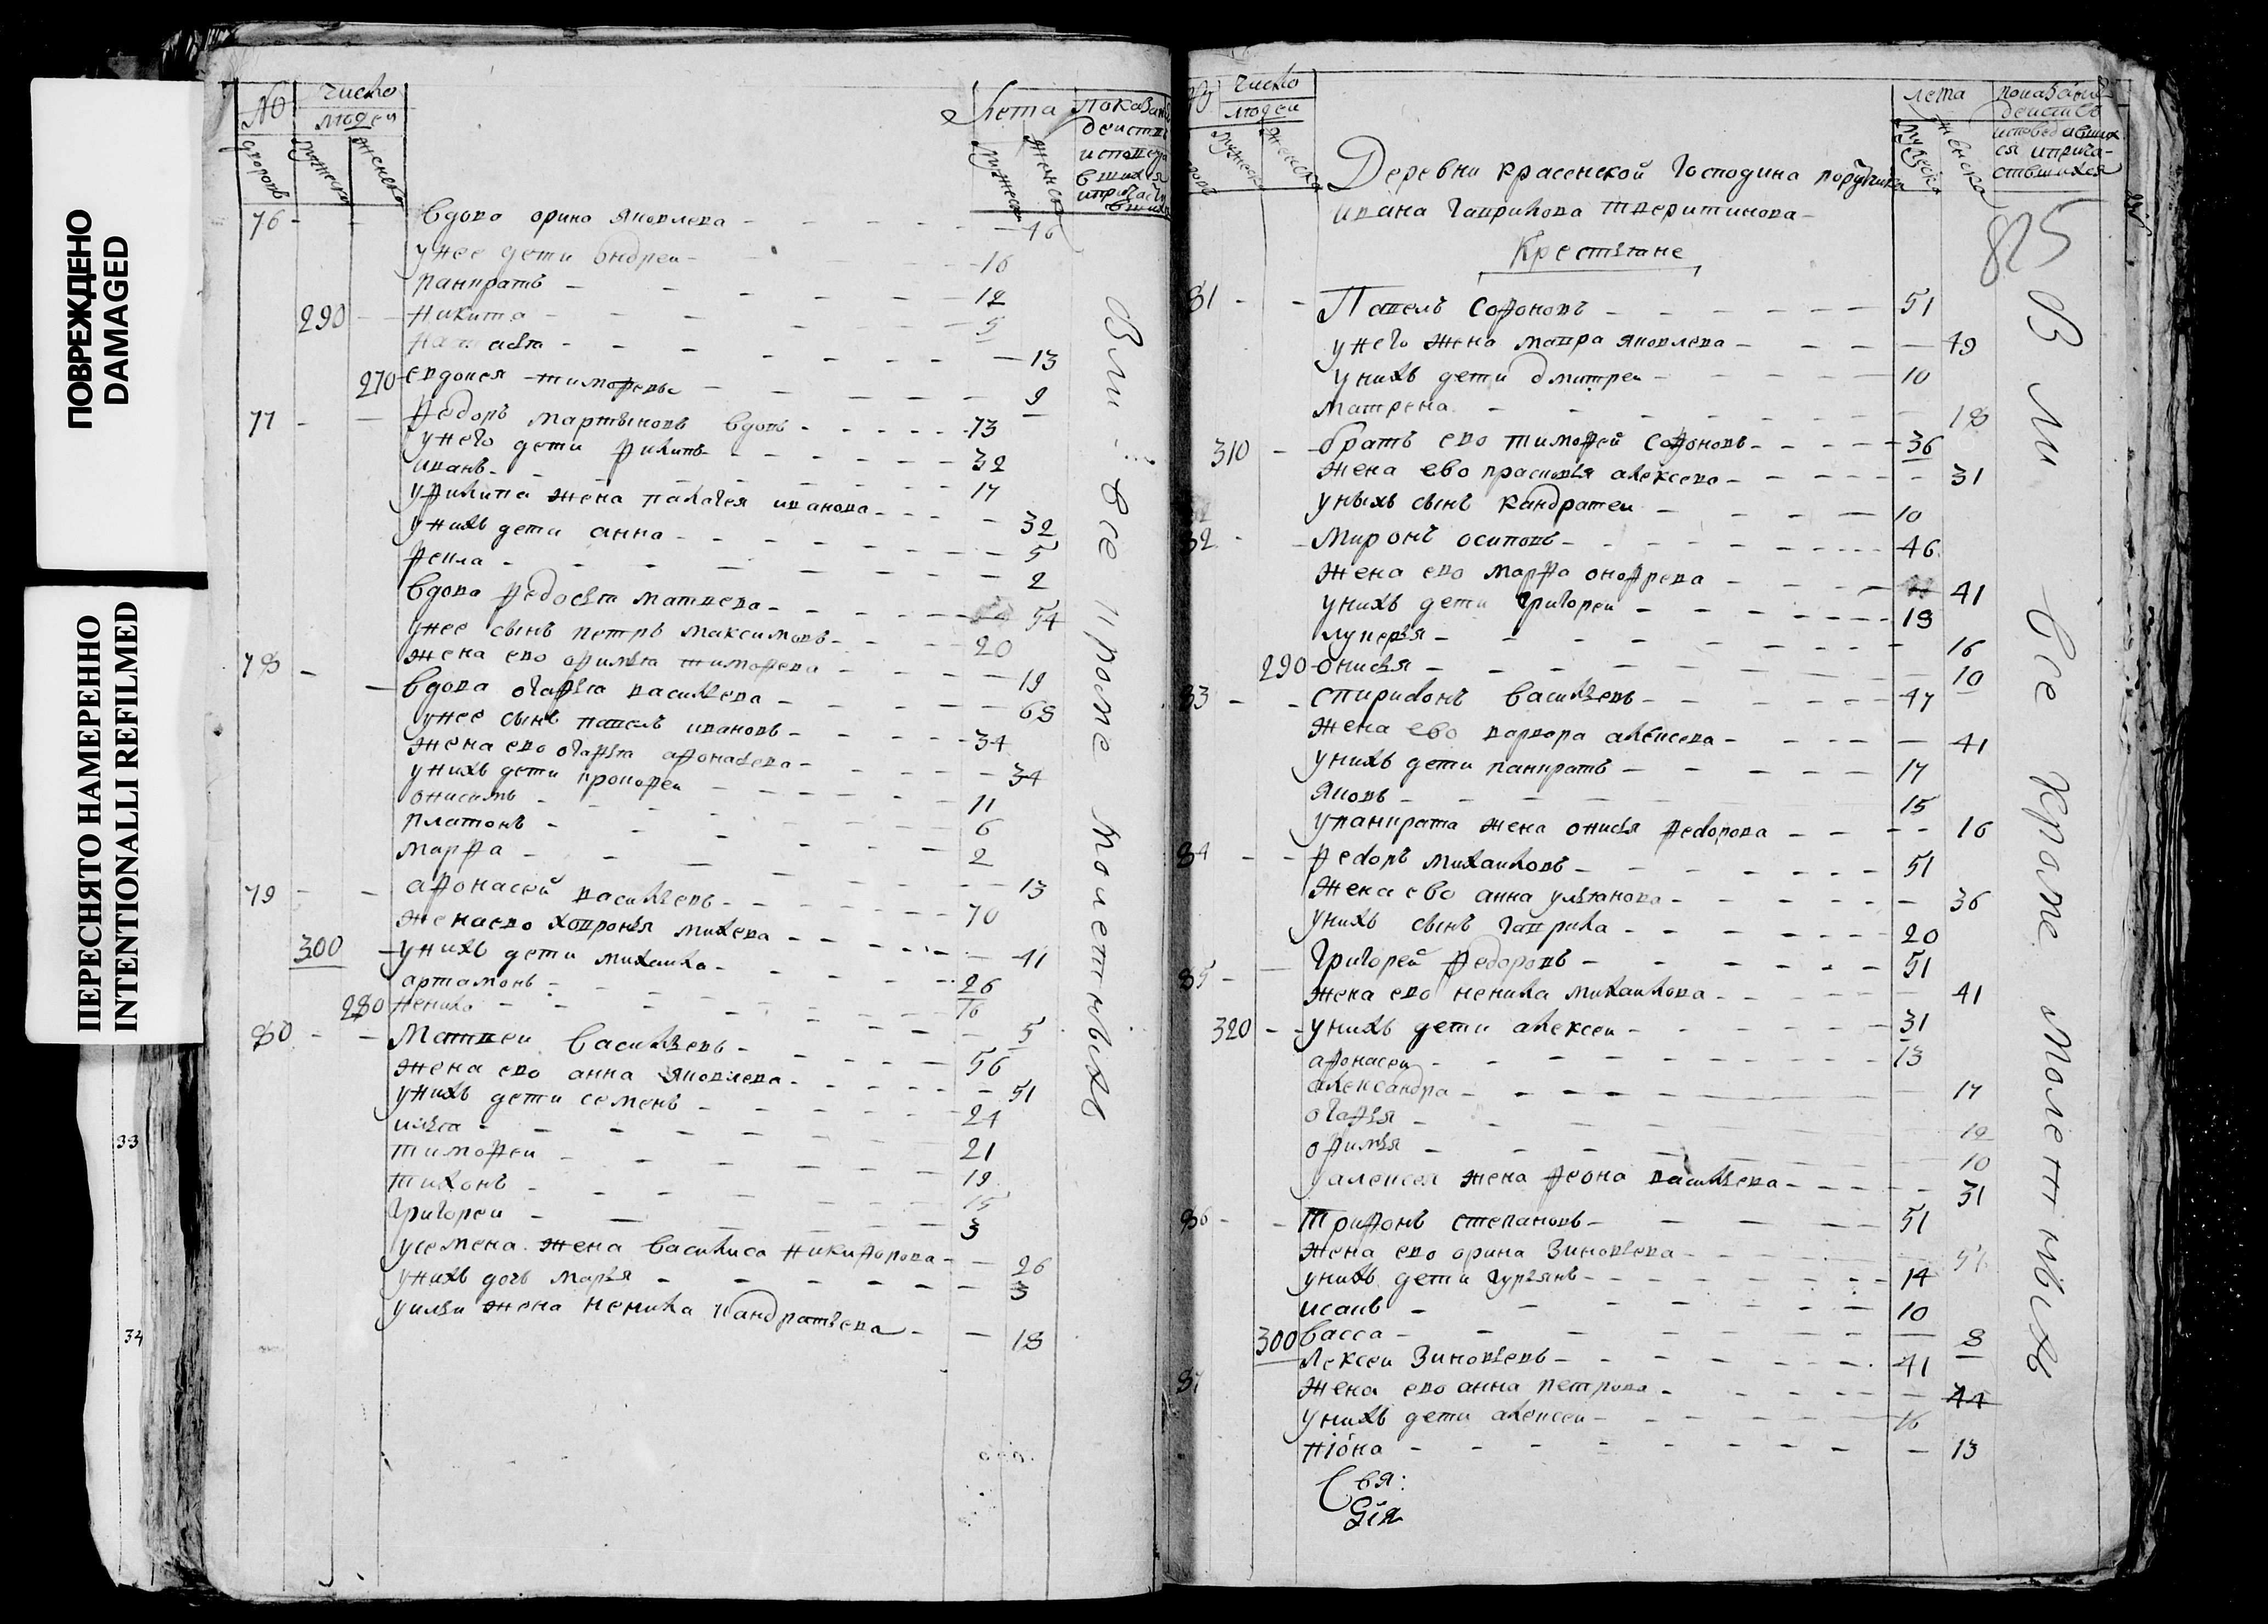 ПОВРЕЖДЕНО
DAMAGED
ПЕРЕСНЯТО НАМЕРЕННО
INTENTIONALLI REFILMED
33
34
№ дворовъ
число людей
мужеска
женска
Лета
мужеска
женска
76 вдова орина яковлева 46
унее дети андреи 16
панкратъ 12
290 никита 5
13
270 евдокея тимофеевы 9
77 федоръ мартыновъ вдовъ 73
унего дети филипъ 32
иванъ 17
уфилипа жена палагея иванова 32
унихъ дети анна 5
фекла 2
вдова федосья матвева 54
унее сынъ петръ максимовъ 20
жена ево офимья тимофева 19
78 вдова огафья васильева 68
унее сынъ павелъ ивановъ 34
жена ево огафья афонасева 34
унихъ дети прокофеи 11
онисимъ 6
платонъ 2
марфа 13
79 афонасей васильевъ 70
жена ево ховронья михева 41
300 унихъ дети михаила 26
артамонъ 16
280 ненила 5
80 Матвеи васильевъ 56
жена ево анна яковлева 51
унихъ дети семенъ 24
илья 21
тимофеи 19
тихонъ 15
григореи 3
усемена жена василиса никифорова 26
унихъ дочь марья 3
уильи жена ненила кандратьева 18
Вси все кроме молетныхъ
число людей
мужеска
женска
лета
мужеска
женска
825
Деревни красенской Господина порутчика
ивана гаврилова тверитинова
Крестьяне
81 Павелъ Софоновъ 51
унего жена мавра яковлева 49
унихъ дети дмитреи 10
матрена 18
310 братъ ево тимофей софоновъ 36
жена ево прасковья алексева 31
уныхъ сынъ кандратеи 10
82 Миронъ осиповъ 46
жена ево марфа онофрева 41
унихъ дети григореи 18
лукерья 16
290 онисья 10
83 спиридонъ васильевъ 47
жена ево варвара алексева 41
унихъ дети панкратъ 17
яковъ 15
упанкрата жена онисья федорова 16
84 федоръ михаиловъ 51
жена ево анна ульянова 36
унихъ сынъ гаврила 20
85 григорей федоровъ 51
жена ево ненила михаилова 41
320 унихъ дети алексеи 31
афонасеи 13
александра 17
огафья 12
офимья 10
уалексея жена феона васильева 31
86 трифонъ степановъ 51
жена ево орина зиновьева
унихъ дети гурьянъ 14
исаивъ 10
300 васса 8
87 Лексеи зиновьевъ 41
жена ево анна петрова 44
унихъ дети алексеи 16
13
Вси все кроме молетныхъ